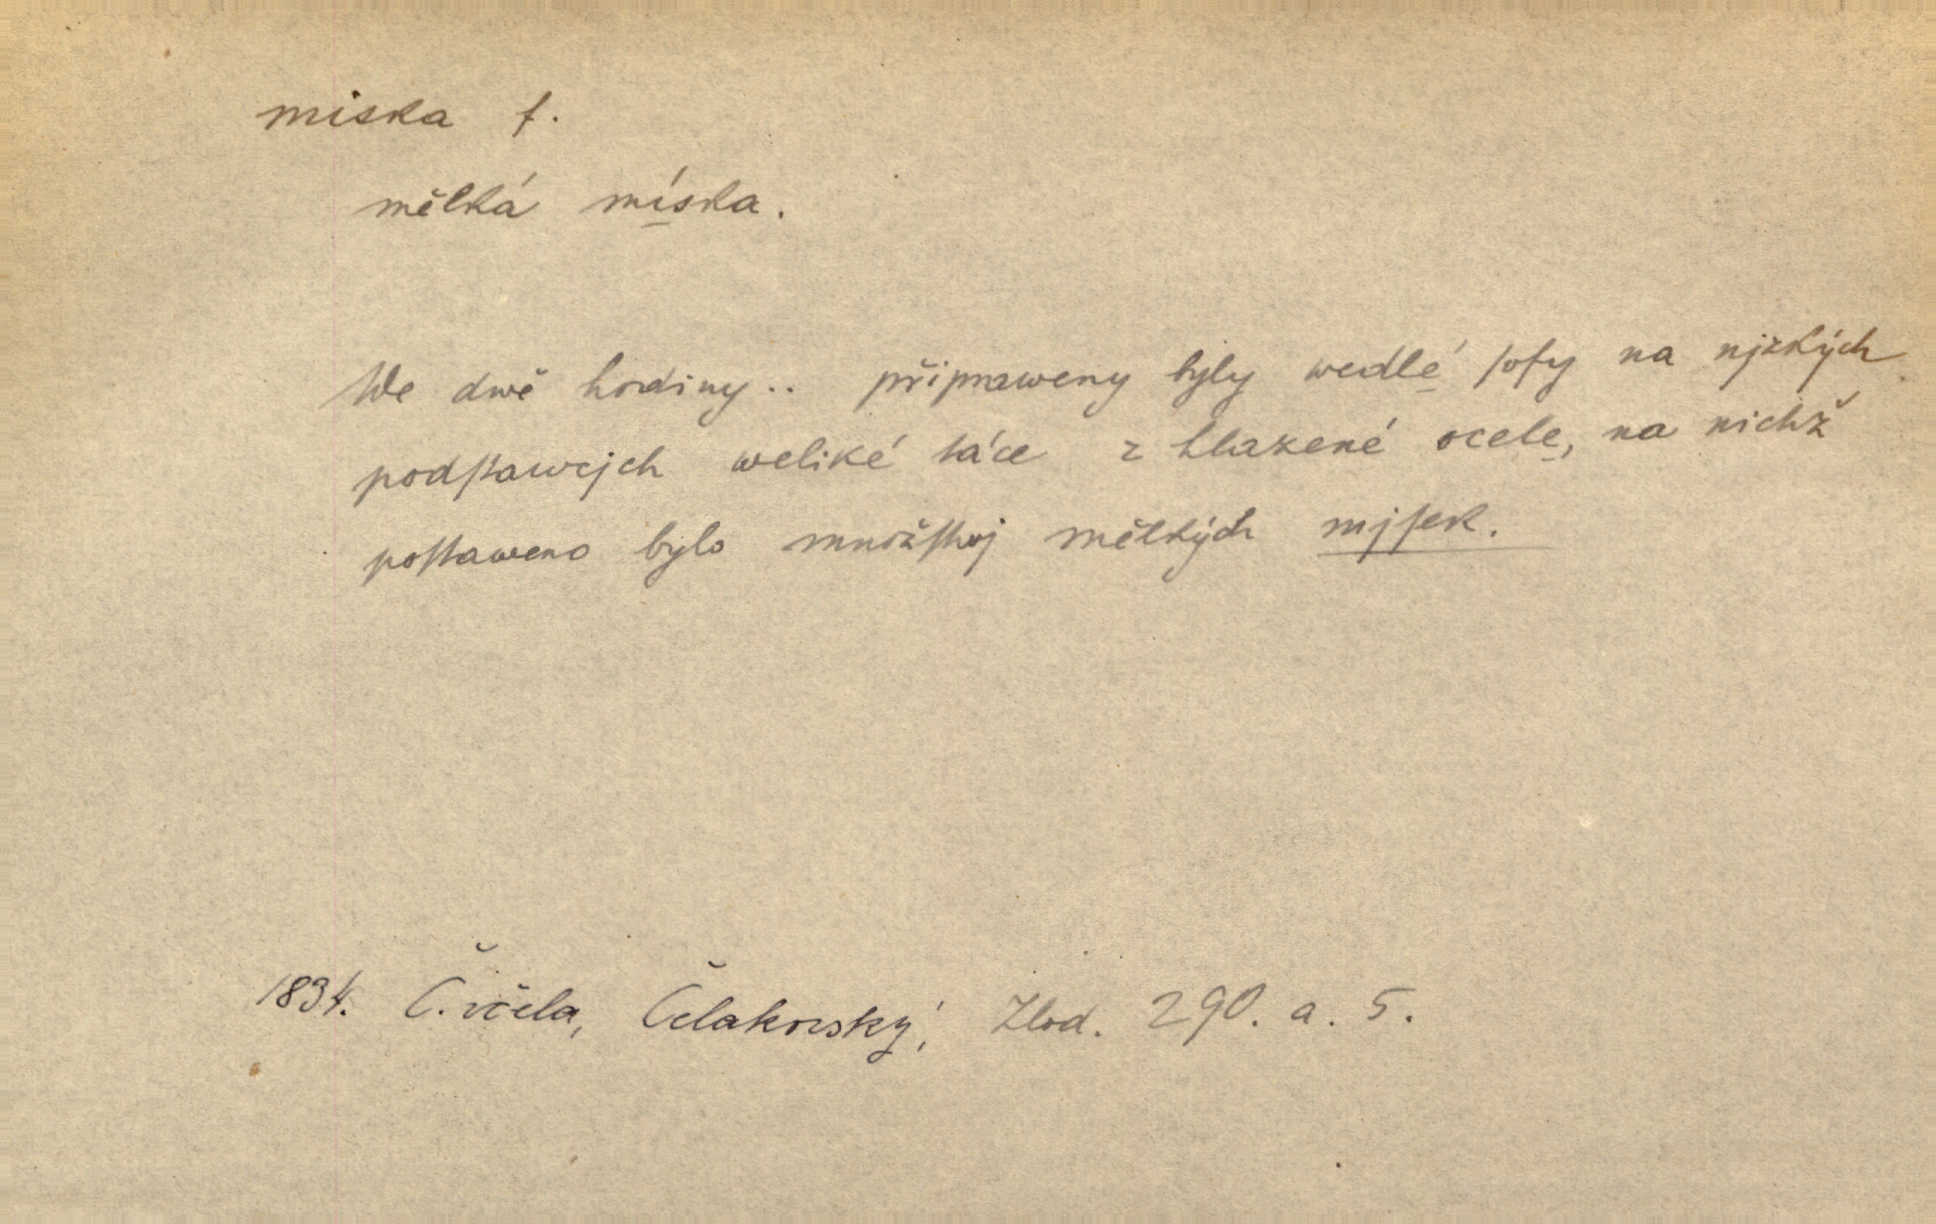 miska f.
mělká míska.
We dwě hodiny.. připraweny byly wedlé ſofy na njzkých
podſtawcjch weliké táce z hlazené ocele, na nichž
poſtaweno bylo množſtwj mělkých mjſek.
1834. Č. včela, Čelakovský, Zlod. 290. a. 5.